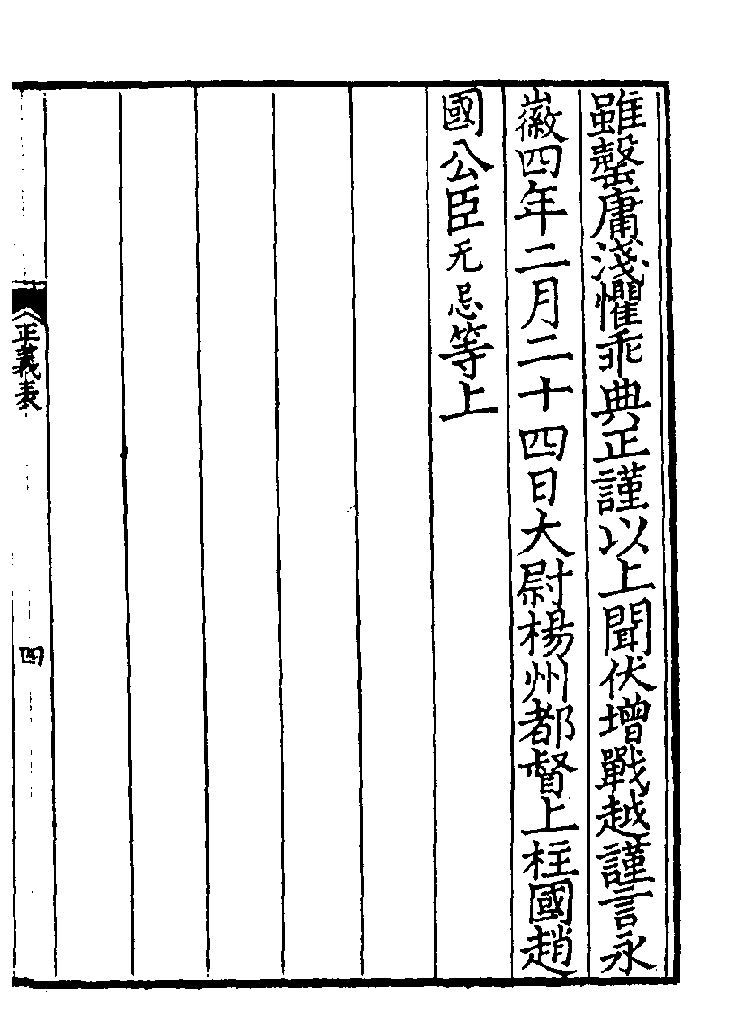 雖罄庸淺懼乖典正謹以上聞伏增戰越謹言永
徽四年二月二十四日大尉楊州都督上柱國趙
國公臣无忌等上
正義表
四